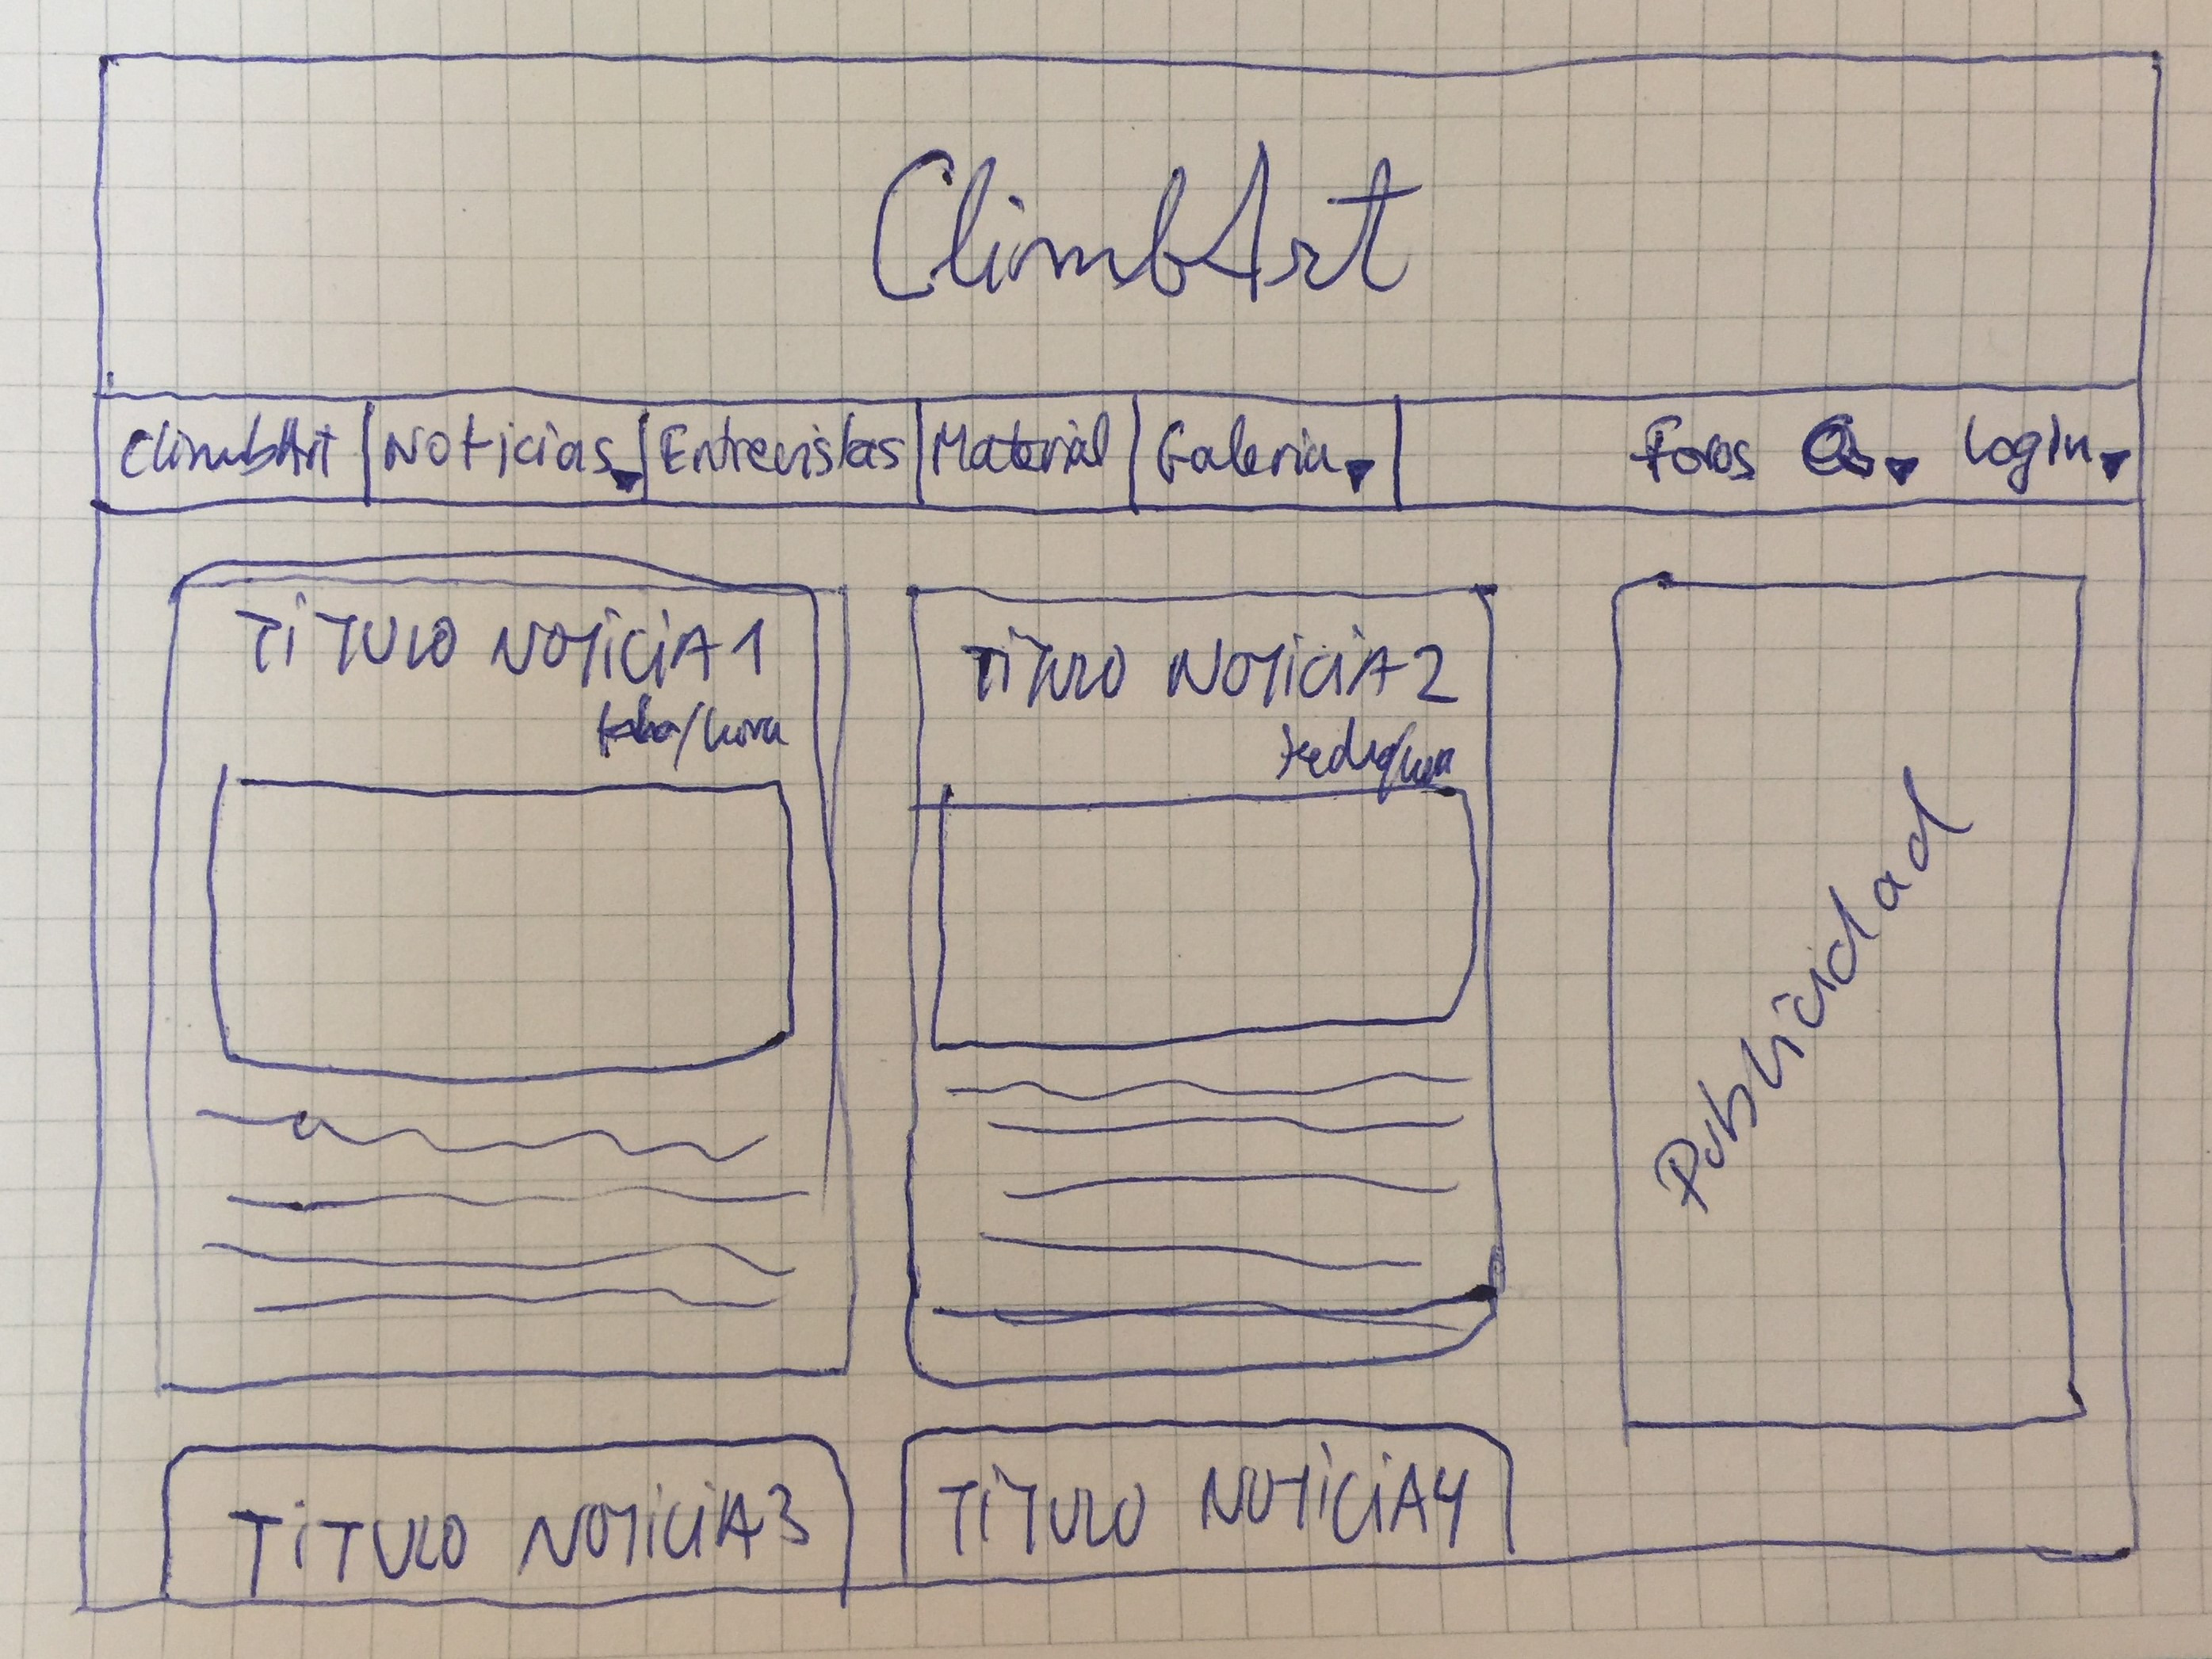 ClimbArt
ClimbArt Noticias Entrevistas Material Galeria Foros Login
TiTULO NOTiCiA1
TiTULO NOTiCiA2
fecha/hora
Publicidad
TiTULO NOTiCiA3
TiTULO NOTiCiA4